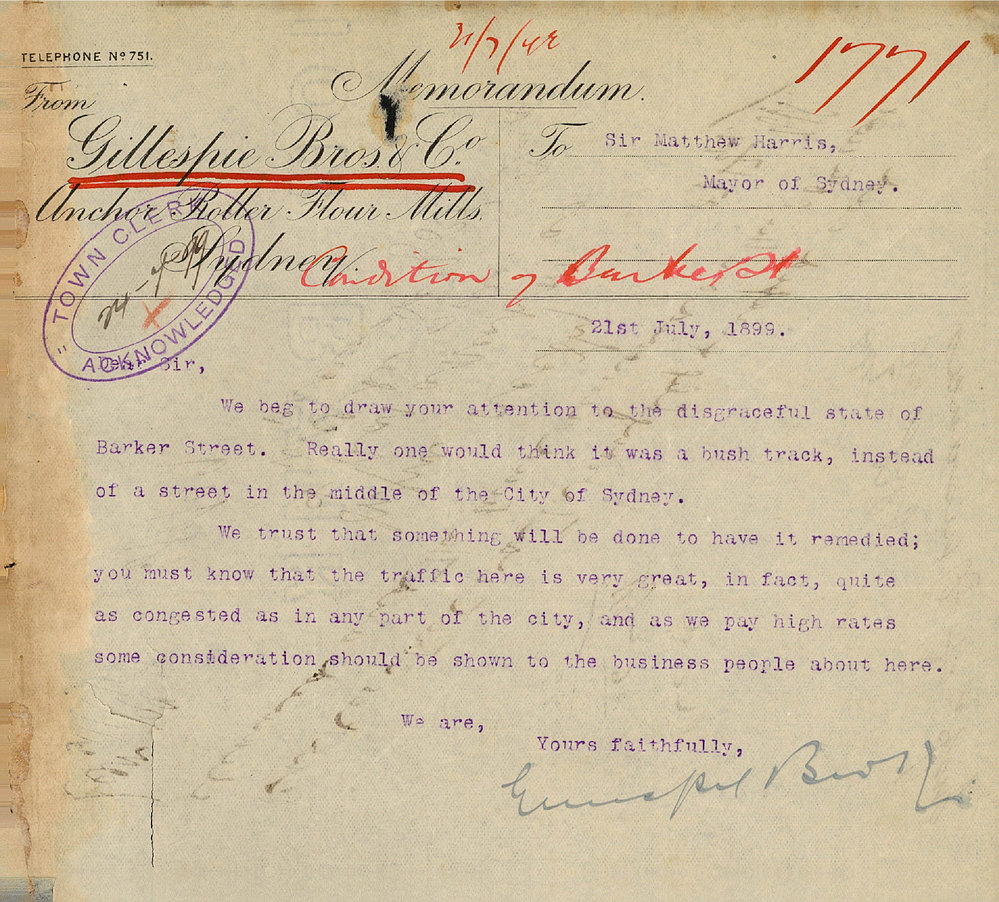 TELEPHONE Nº 751.
Memorandum.
1771
From
Gillespie Bros & Co.
To Sir Matthew Harris,
Mayor of Sydney.
Anchor Roller Flour Mills,
Sydney.
Condition of Barker St
TOWN CLERK
ACKNOWLEDGED
21st July, 1899.
Dear Sir,
We beg to draw your attention to the disgraceful state of
Barker Street. Really one would think it was a bush track, instead
of a street in the middle of the City of Sydney.
We trust that something will be done to have it remedied;
you must know that the traffic here is very great, in fact, quite
as congested as in any part of the city, and as we pay high rates
some consideration should be shown to the business people about here.
We are,
Yours faithfully,